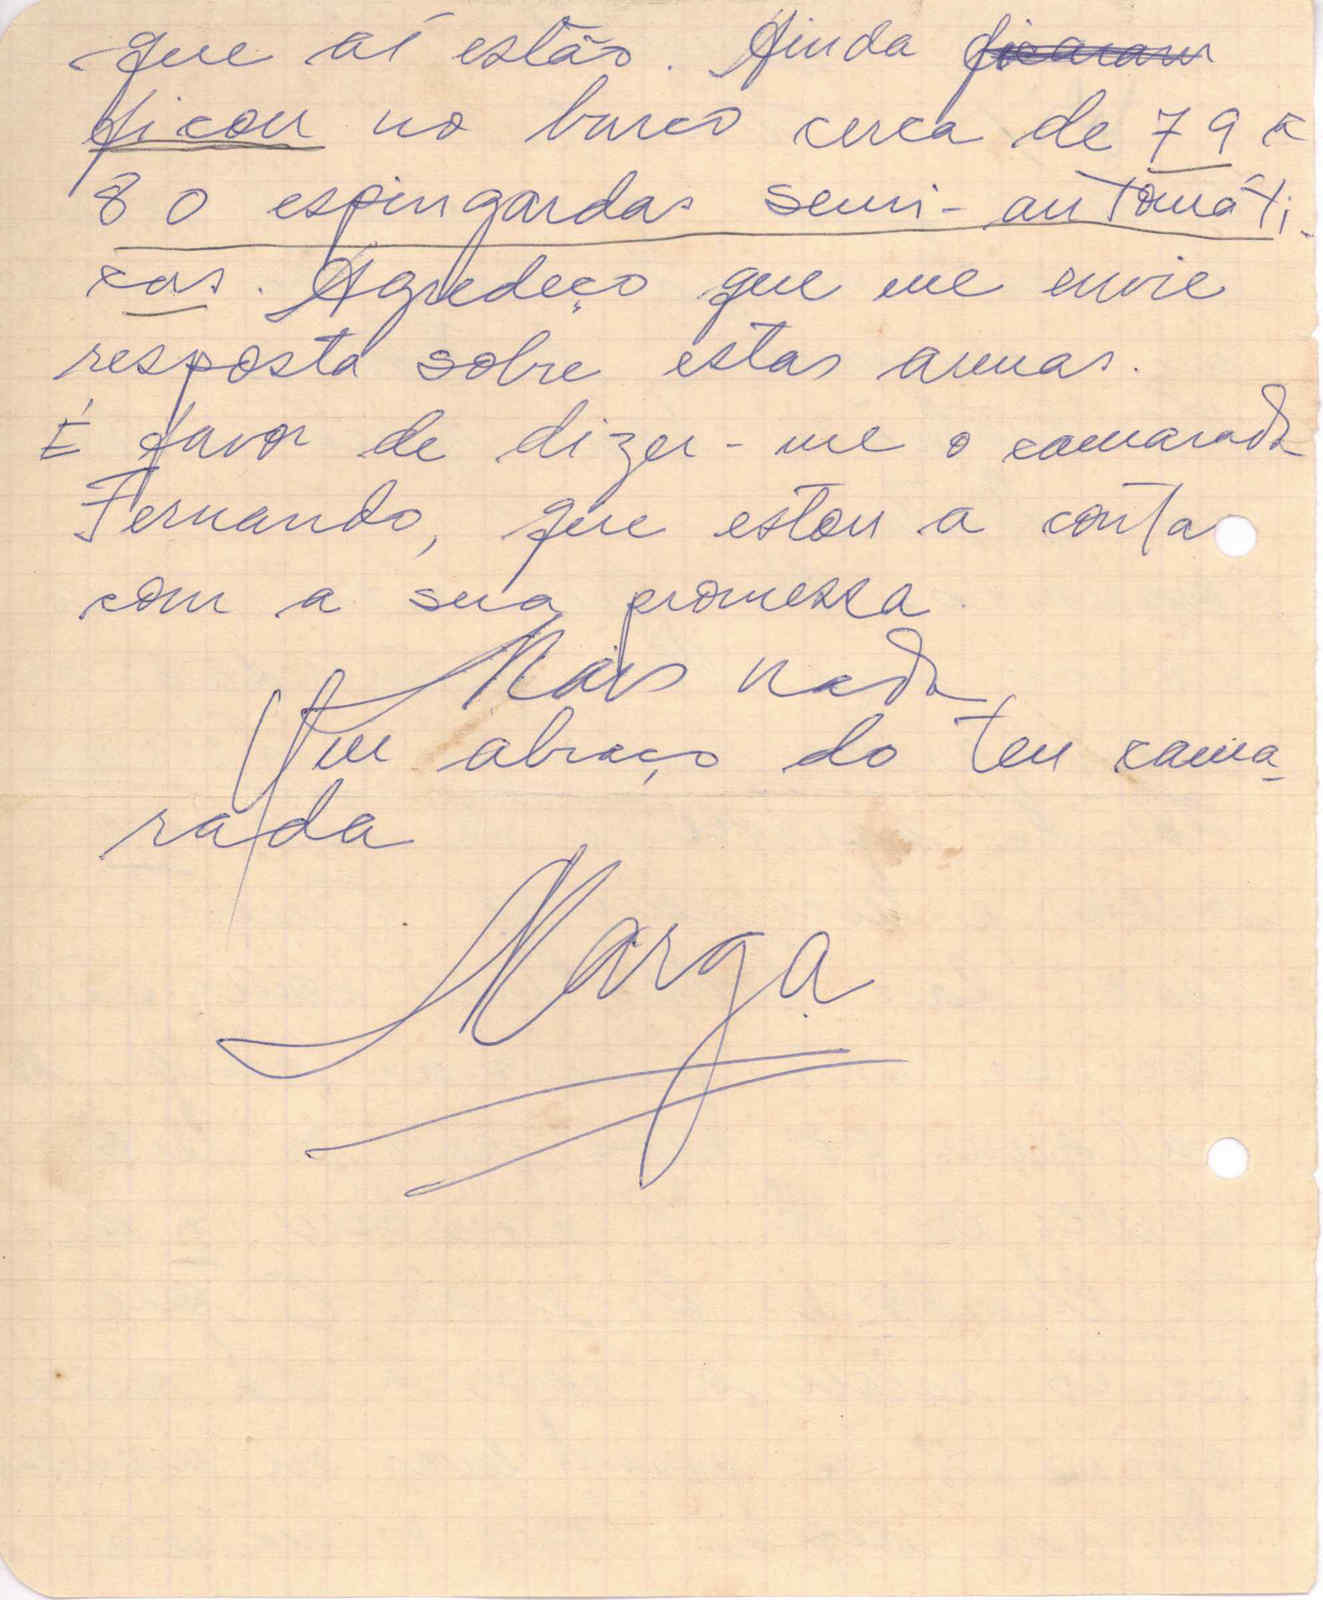 que aí estão. Ainda ficaram
ficou no barco cerca de 79 a
80 espingardas semi-automáti-
cas. Agredeço que me envie
resposta sobre estas armas.
É favor de dizer-me o camarada
Fernando, que estou a conta
com a sua promessa.
Mais nada
Um abraço do teu cama-
rada
Marga